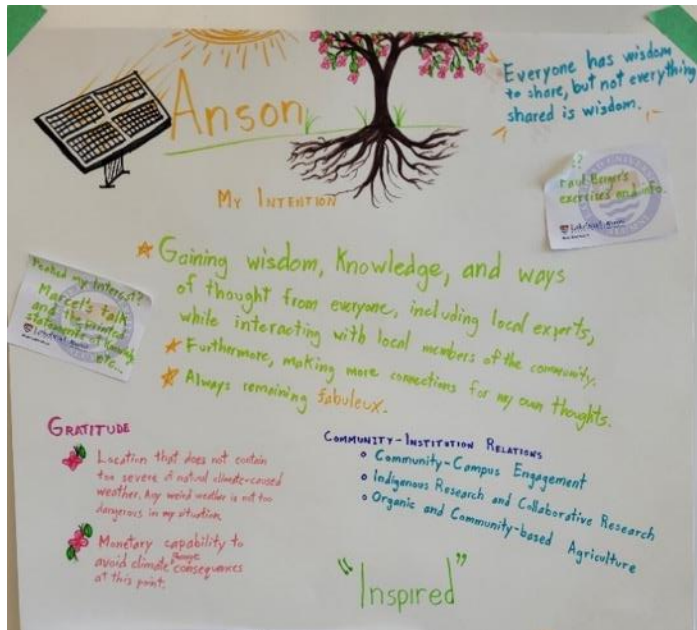 Anson
Everyone has wisdom
to share, but not everything
shared is wisdom.
My Intention
??
exercises and info.
Gaining wisdom, Knowledge, and ways
of thought from everyone, including local experts,
while interacting with local members of the community.
Furthermore, making more connections for my own thoughts.
Always remaining fabuleux.
Peaked my interest?
Marcel's talk
and the printed
statements of
etc...
Gratitude
Location that does not contain
too severe of natural climate-caused
weather. Any weird weather is not too
dangerous in my situation.
Monetary capability to
avoid climate change consequences
at this point.
Community-Institution Relations
Community-Campus Engagement
Indigenous Research and Collaborative Research
Organic and Community-based Agriculture
"Inspired"